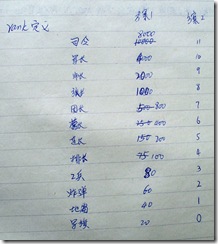 rank 定义 方案1 方案2
8000
司令 10000 11
军长 4000 10
师长 2000 9
旅长 1000 8
团长 500 800 7
营长 250 400 6
连长 150 200 5
排长 75 100 4
工兵 80 3
炸弹 60 2
地雷 40 1
军旗 20 0